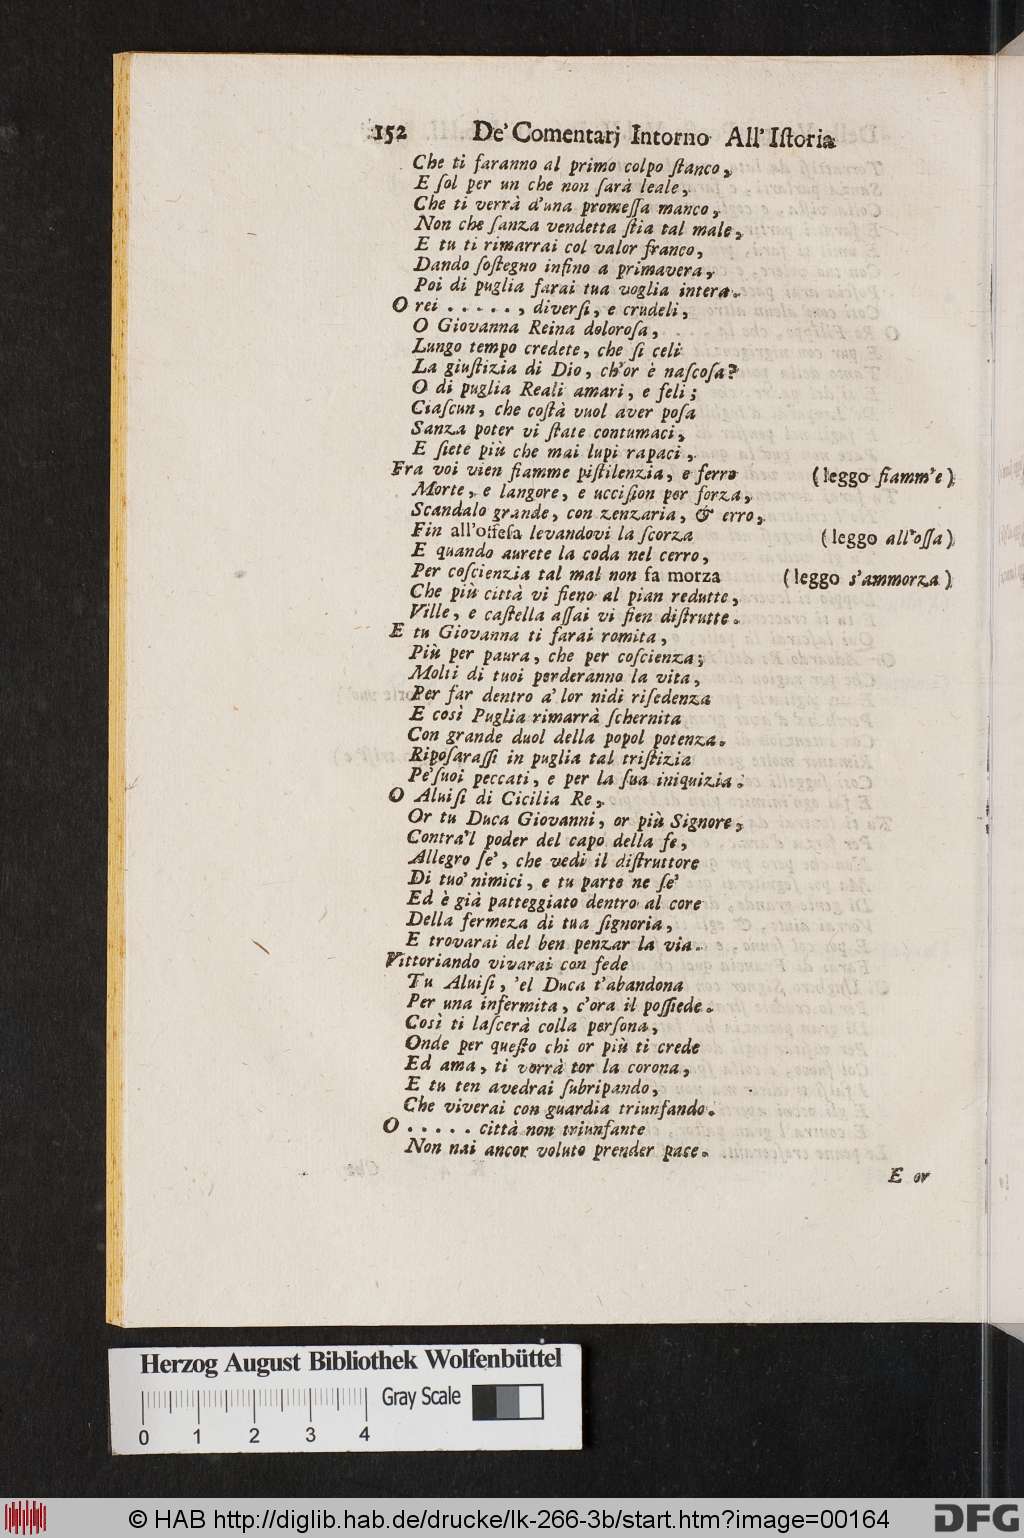 152 De' Comentarj Intorno All' Iſtoria
Che ti faranno al primo colpo ſtanco,
E ſol per un che non ſarà leale,
Che ti verrà d'una promeſſa manco,
Non che ſanza vendetta ſtia tal male,
E tu ti rimarrai col valor franco,
Dando ſoſtegno infino a primavera,
Poi di puglia farai tua voglia intera.
O rei . . . . . , diverſi, e crudeli,
O Giovanna Reina doloroſa,
Lungo tempo credete, che ſi celi
La giuſtizia di Dio, ch'or è naſcoſa?
O di puglia Reali amari, e feli;
Ciaſcun, che coſtà vuol aver poſa
Sanza poter vi ſtate contumaci,
E ſiete più che mai lupi rapaci,
Fra voi vien fiamme piſtilenzia, e ferro (leggo fiamm'e)
Morte, e langore, e ucciſion per forza,
Scandalo grande, con zenzaria, & erro,
Fin all'offeſa levandovi la ſcorza (leggo all'oſſa)
E quando aurete la coda nel cerro,
Per coſcienzia tal mal non fa morza (leggo s'ammorza)
Che più città vi fieno al pian redutte,
Ville, e caſtella aſſai vi fien diſtrutte.
E tu Giovanna ti farai romita,
Più per paura, che per coſcienza;
Molti di tuoi perderanno la vita,
Per far dentro a' lor nidi riſedenza
E così Puglia rimarrà ſchernita
Con grande duol della popol potenza.
Ripoſaraſſi in puglia tal triſtizia
Pe'ſuoi peccati, e per la ſua iniquizia.
O Aluiſi di Cicilia Re,
Or tu Duca Giovanni, or più Signore,
Contra'l poder del capo della fe,
Allegro ſe', che vedi il diſtruttore
Di tuo' nimici, e tu parte ne ſe'
Ed è già patteggiato dentro al core
Della fermeza di tua ſignoria,
E trovarai del ben penzar la via.
Vittoriando vivarai con fede
Tu Aluiſi, 'el Duca t'abandona
Per una infermita, c'ora il poſſiede.
Così ti laſcerà colla perſona,
Onde per queſto chi or più ti crede
Ed ama, ti vorrà tor la corona,
E tu ten avedrai ſubripando,
Che viverai con guardia triunfando.
O . . . . . città non triunfante
Non nai ancor voluto prender pace.
E or
Herzog August Bibliothek Wolfenbüttel
Gray Scale
0 1 2 3 4
© HAB http://diglib.hab.de/drucke/lk-266-3b/start.htm?image=00164
DFG